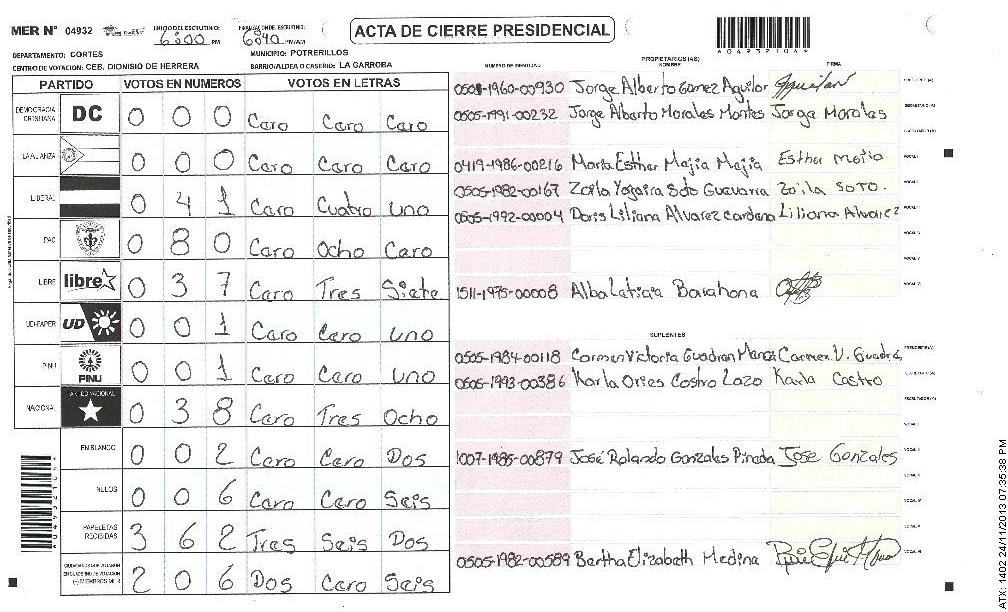 MER N° 04932
INICIO DE ESCRUTINIO: 6:00 PM
FINALIZACION DE ESCRUTINIO: 6:40 PM/AM
ACTA DE CIERRE PRESIDENCIAL
A049321044
DEPARTAMENTO: CORTES
MUNICIPIO: POTRERILLOS
CENTRO DE VOTACION: CEB. DIONISIO DE HERRERA
BARRIO/ALDEA O CASERIO: LA GARROBA
PARTIDO VOTOS EN NUMEROS VOTOS EN LETRAS
DEMOCRACIA CRISTIANA DC 0 0 0 Caro Caro Caro
LA ALIANZA 0 0 0 Caro Caro Caro
LIBERAL 0 4 1 Caro Cuatro uno
PAC 0 8 0 Caro Ocho Caro
LIBRE libre 0 3 7 Caro Tres Siete
UD-FAPER UD 0 0 1 Caro Caro uno
PINU PINU 0 0 1 Caro Caro uno
NACIONAL PARTIDO NACIONAL 0 3 8 Caro Tres Ocho
EN BLANCO 0 0 2 Caro Caro Dos
NULOS 0 0 6 Caro Caro Seis
PAPELETAS RECIBIDAS 3 6 2 Tres Seis Dos
CIUDADANOS QUE VOTARON EN CUADERNO DE VOTACION (+) MIEMBROS MER 2 0 6 Dos Caro Seis
NUMERO DE IDENTIDAD PROPIETARIOS (AS) NOMBRE FIRMA
0501-1960-00930 Jorge Alberto Gomez Aguilar Aguilar
0505-1991-00232 Jorge Alberto Morales Montes Jorge Morales
0419-1986-00216 Maria Esther Mejia Mejia Esther Mejia
0505-1982-00167 Zoila Yogaira Soto Guevarra Zoila SOTO.
0505-1992-00004 Doris Liliana Alvarez Cardona Liliana Alvarez
1511-1975-00008 Alba Leticia Barahona
SUPLENTES
0505-1984-00118 Carmen Victoria Guadron Carmen V. Guadron
0506-1993-00386 Karla Ories Castro Lazo Karla Castro
1007-1985-00879 José Rolando Gonzales Pineda Jose Gonzales
0505-1982-00589 Bertha Elizabeth Medina
ATX: 1402 24/11/2013 07:35:38 PM